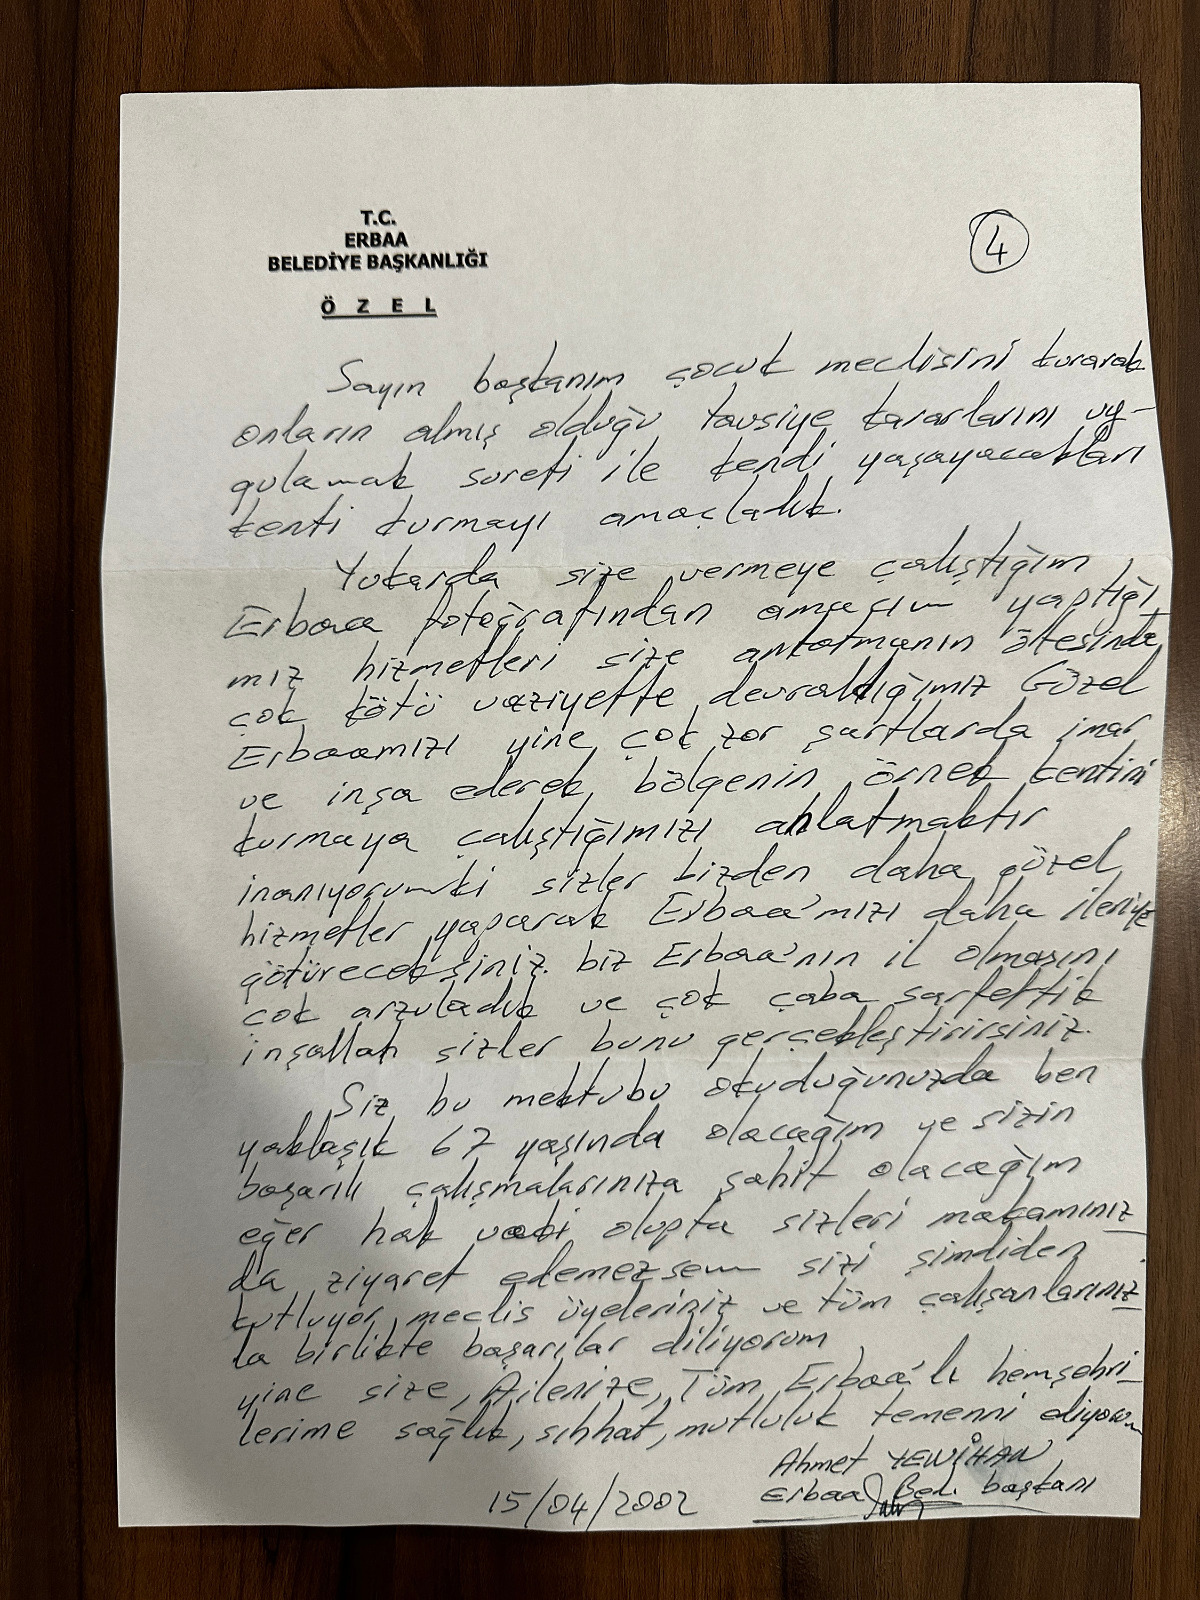 T.C.
ERBAA
BELEDİYE BAŞKANLIĞI
Ö Z E L
4
Sayın başkanım çocuk meclisini kurarak
onların almış olduğu tavsiye kararlarını uy-
gulamak sureti ile kendi yaşayacakları
kenti kurmayı amaçladık.
Yukarda size vermeye çalıştığım
Erbaa fotoğrafından amacım yaptığı_
mız hizmetleri size anlatmanın ötesinde
çok kötü vaziyette devraldığımız Güzel
Erbaamızı yine çok zor şartlarda imar
ve inşa ederek bölgenin örnek kentini
kurmaya çalıştığımızı anlatmaktır
inanıyorumki sizler bizden daha güzel
hizmetler yaparak Erbaa'mızı daha ileriye
götüreceksiniz. biz Erbaa'nın il olmasını
çok arzuladık ve çok çaba sarfettik
inşallah sizler bunu gerçekleştirirsiniz.
Siz bu mektubu okuduğunuzda ben
yaklaşık 67 yaşında olacağım ve sizin
başarılı çalışmalarınıza şahit olacağım
eğer hak vaki olupta sizleri makamınız_
da ziyaret edemezsem sizi şimdiden
kutluyor, meclis üyeleriniz ve tüm çalışanlarınız_
la birlikte başarılar diliyorum
yine size, Ailenize, Tüm Erbaa'lı hemşehri_
lerime sağlık, sıhhat, mutluluk temenni ediyorum
Ahmet YENİHAN
15/04/2002 Erbaa Bel. başkanı